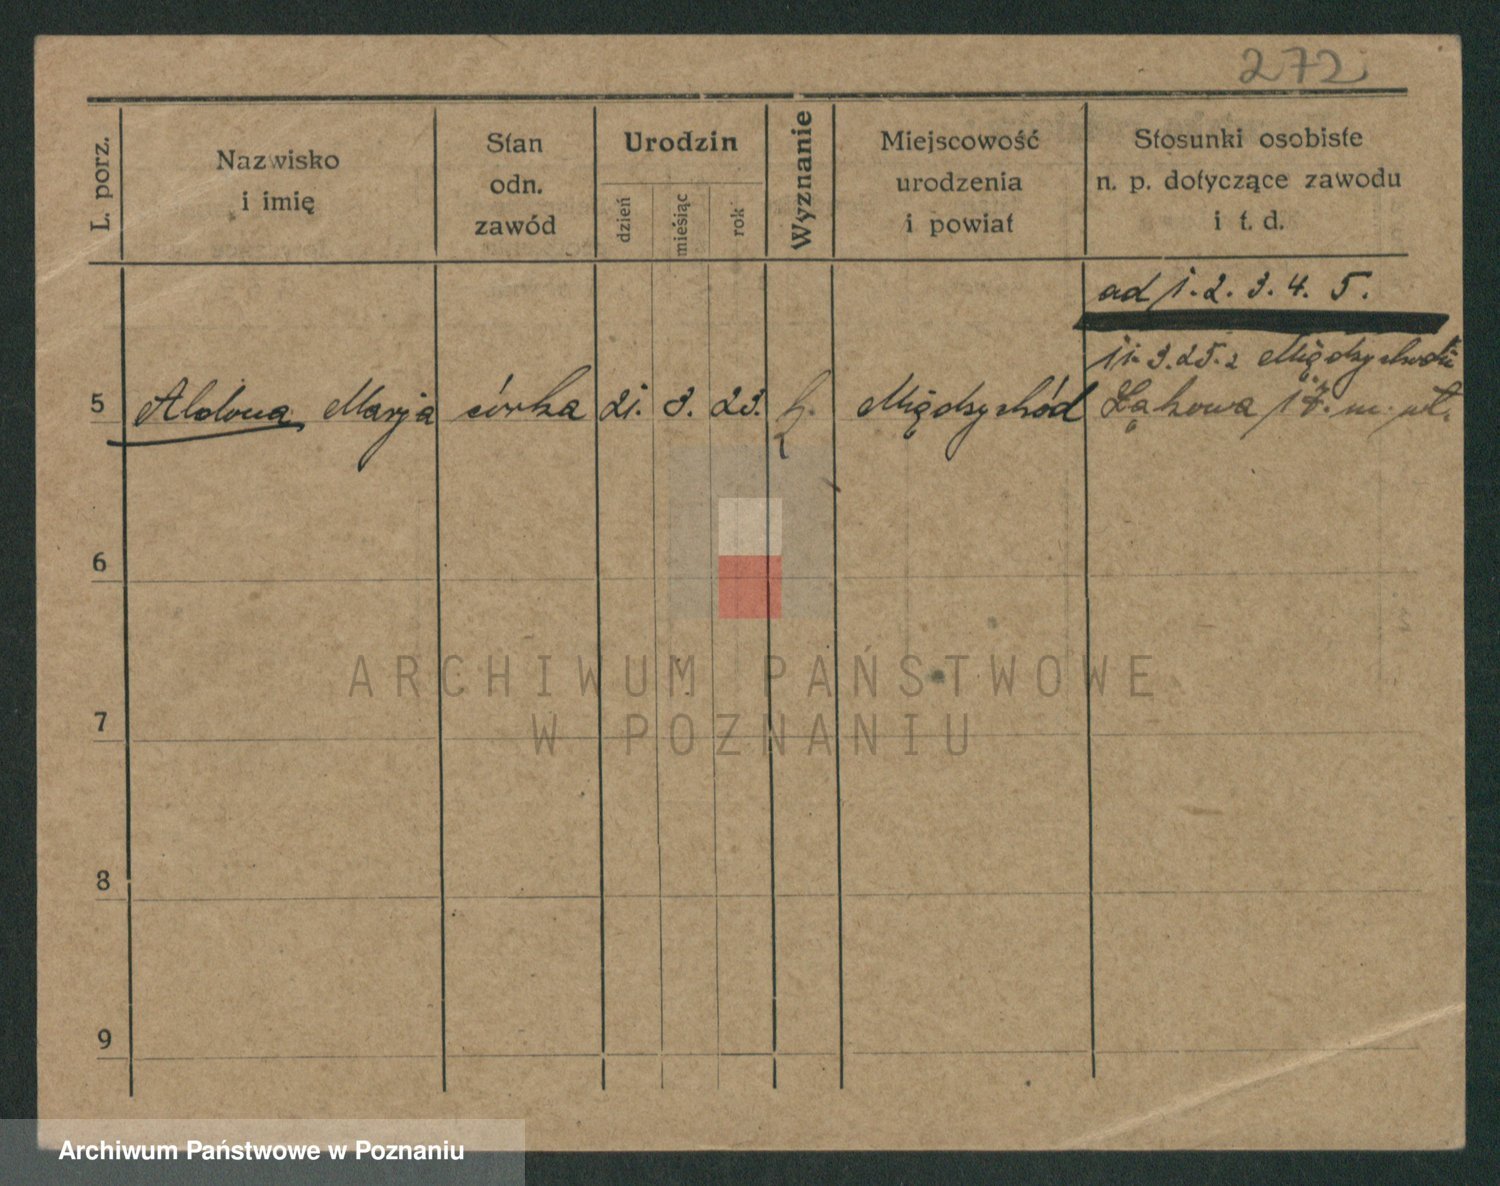 272
L. porz.
Nazwisko
i imię
Stan
odn.
zawód
Urodzin
dzień
miesiąc
rok
Wyznanie
Miejscowość
urodzenia
i powiat
Stosunki osobiste
n. p. dotyczące zawodu
i t. d.
ad 1. 2. 3. 4. 5.
11. 3. 25. z Międzychodu
5 Aldona Marja córka 21. 3. 23. k. Międzychód Łąkowa 17. m. wł.
6
7
8
9
ARCHIWUM PAŃSTWOWE
W POZNANIU
Archiwum Państwowe w Poznaniu